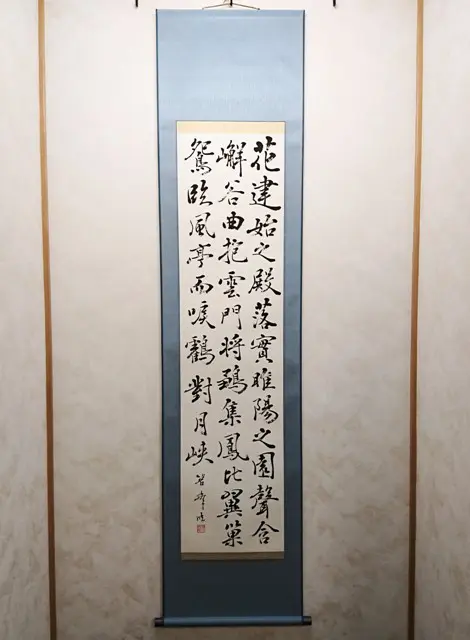 花建始之殿落實睢陽之園聲含
嶰谷曲抱雲門將鶵集鳳比翼巢
鴛臨風亭而唳鶴對月峽